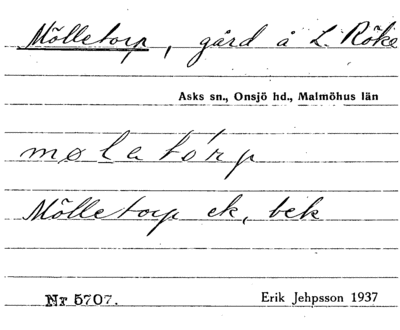 Mölletorp, gård å L. Röke
Asks sn., Onsjö hd., Malmöhus län
mølatórp
Mölletorp ek, bek
Nr 5707.
Erik Jehpsson 1937